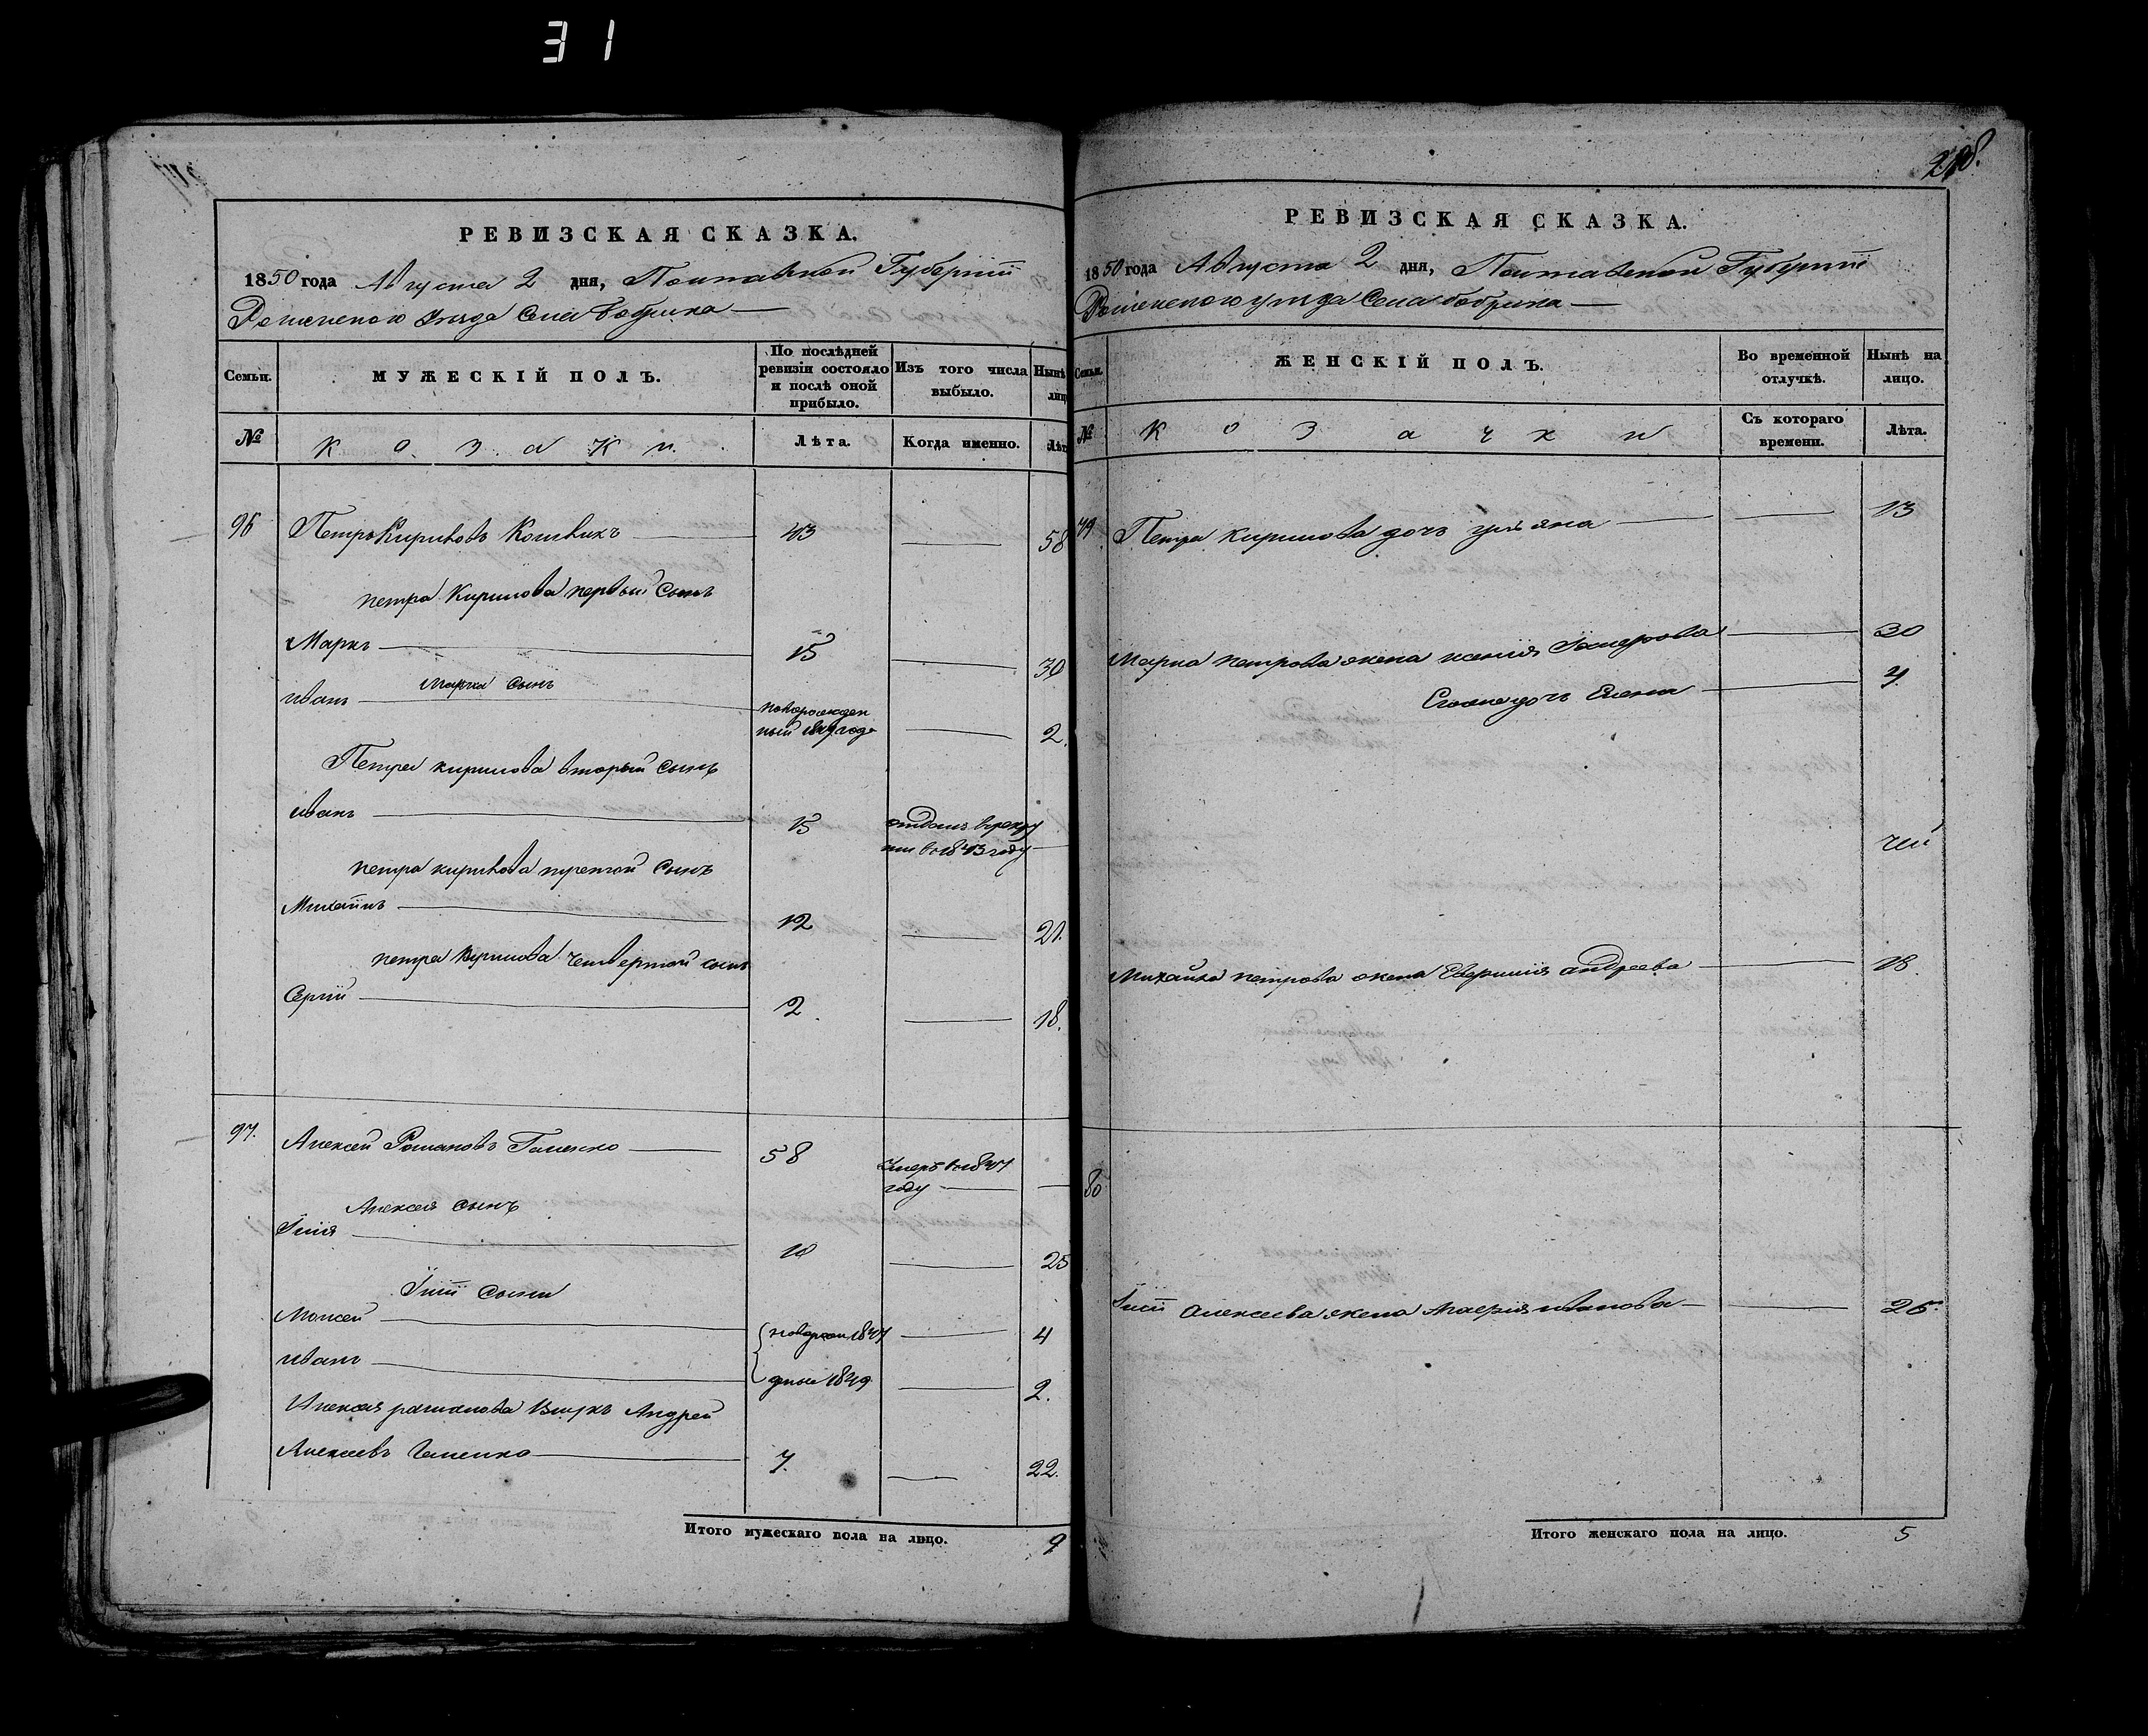 31
РЕВИЗСКАЯ СКАЗКА.
1850 года Августа 2 дня, Полтавской Губернiи
Роменского уезда Села Бобрика
Семьи.
МУЖЕСКІЙ ПОЛЪ.
По послѣдней ревизіи состояло и послѣ оной прибыло.
Изъ того числа выбыло.
Нынѣ
лиц
№
Козаки.
Лѣта.
Когда именно.
Лѣт
96 Петръ Кириловъ 43 58
петра Кирилова первый Сынъ
Марко 15 30
Марка Сынъ
иванъ новорожден ный 1849 года 2.
Петра кирилова вторый Сынъ
иванъ 15 отданъ врекру ты в 1843 году
петра кирилова третой Сынъ
Михаилъ 12 21.
петра Кирилова Четвертой сынъ
Сергiй 2 18.
97. Алексей Романовъ 58 Умеръ в 1847
году
Алексея Сынъ
Iлiя 10 25
Iлiи Сыны
Моисей новорож 1847 4
иванъ дные 1849 2.
Алексея романова Внукъ Андрей
Алексеевъ 7. 22.
Итого мужескаго пола на лицо. 9
РЕВИЗСКАЯ СКАЗКА.
1850 года Августа 2 дня, Полтавской Губернiи
Роменского уезда Села бобрика
Семьи.
ЖЕНСКІЙ ПОЛЪ.
Во временной отлучкѣ.
Нынѣ на лицо.
№
Козачки
Съ котораго времени.
Лѣта.
79 Петра Кирилова дочь ульяна 13
Марка петрова жена ксенiя 30
Егоже дочь Елена 7.
Михайла петрова жена андреева 18.
80
Iлiи Алексеева жена Марiя иванова 25.
Итого женскаго пола на лицо. 5